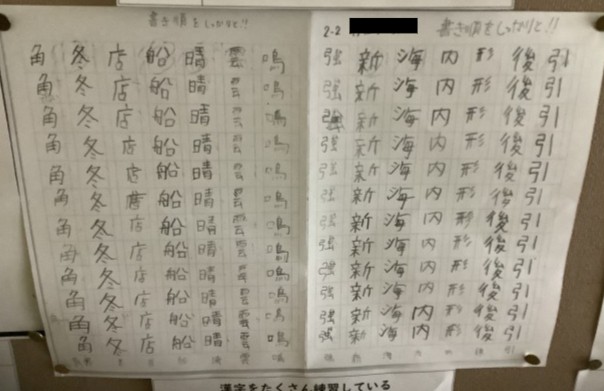 2-2
書き順をしっかりと!!
引引引引引引引引引引引引
後後後後後後後後後後後後
形形形形形形形形形形形形
内内内内内内内内内内内内
海海海海海海海海海海海海
新新新新新新新新新新新新
強強強強強強強強強強強強
書き順をしっかりと!!
鳴鳴鳴鳴鳴鳴鳴鳴鳴鳴鳴鳴
雲雲雲雲雲雲雲雲雲雲雲雲
晴晴晴晴晴晴晴晴晴晴晴晴
船船船船船船船船船船船船
店店店店店店店店店店店店
冬冬冬冬冬冬冬冬冬冬冬冬
角角角角角角角角角角角角
漢字をたくさん練習している